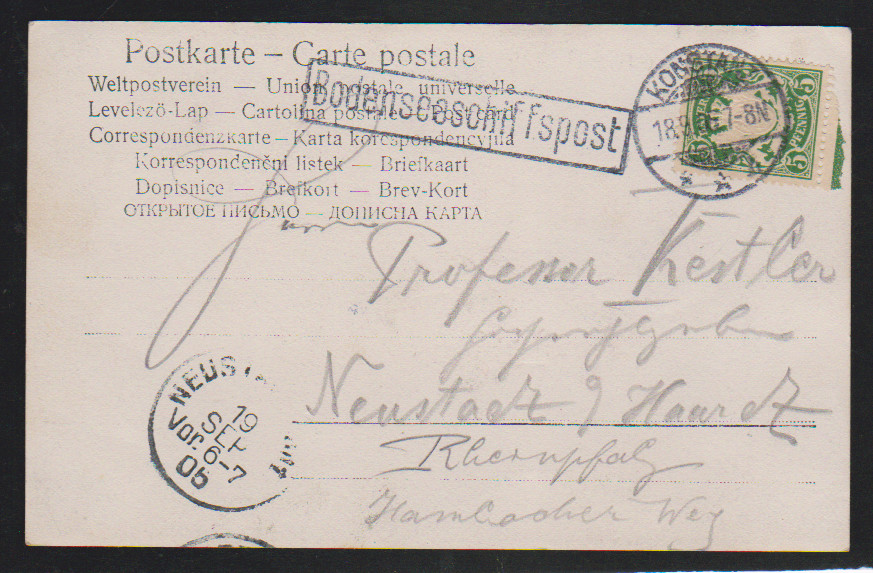 Postkarte – Carte postale
Weltpostverein — Union postale universelle
Levelező-Lap — Cartolina postale — Post card
Correspondenzkarte — Karta korespondencyjna
Korrespondenční listek — Briefkaart
Dopisnice — Brefkort — Brev-Kort
ОТКРЫТОЕ ПИСЬМО — ДОПИСНА КАРТА
Bodenseeschiffspost
KONSTANZ
18.9. -8N
5 PFENNIG 5
Herrn
Professor Kestler
Neustadt a/ Haardt
Rheinpfalz
Hambacher Weg
NEUSTA
19
SET
Vor. 6-7
05